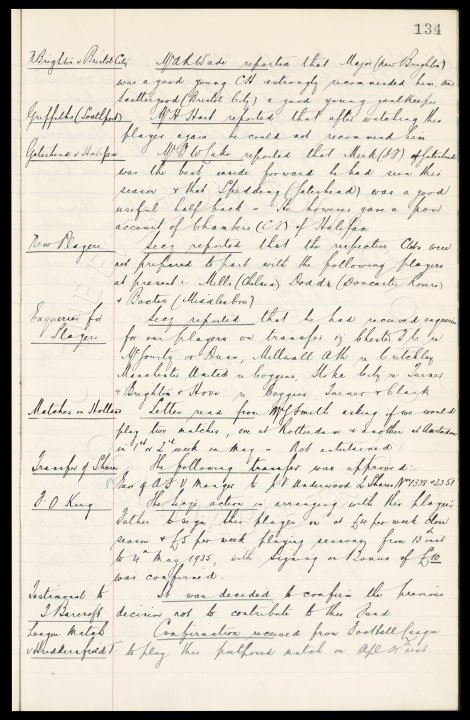 134
N Brighton v Bristol City Mr A R Wade reported that Major (New Brighton)
was a good young CH & strongly recommended him and
Scattergood (Bristol City) a good young goalkeeper
Griffiths (Southport) Mr H Hart reported that after watching this
player again he could not recommend him
Gateshead v Halifax reported that Meek (I.R) of Gateshead
was the best inside forward he had seen this
season & that Spedding (Gateshead) was a good
useful half back – He however gave a poor
account of Chambers of Halifax
New Players Secy reported that the respective Clubs were
not prepared to part with the following players
at present :- Mills (Chelsea) Dodds (Doncaster Rovers)
& (Middlesbro)
Enquiries for Secy reported that he had received enquiries
Players for our players on transfer viz Chester F.C. re
or Dunn, Millwall Ath re Critchley
Manchester United re Coggins, Stoke City re Turner
& Brighton & Hove re Coggins, Turner & Clark
Matches in Holland Letter read from Mr Smith asking if we would
play two matches, one at Rotterdam & another at Amsterdam
in 1st or 2d week in May – Not entertained
Transfer of Shares The following transfer was approved :-
of A S V Manger to Underwood 2 Shares Nos 1338 & 2351
T. O. King The Secy's action in arranging with this player's
Father to sign this player on at £4 per week close
season & £5 per week playing season, from 13 inst
to 4th May 1935, with Signing on Bonus of £10
was confirmed.
Testimonial to It was decided to confirm the previous
J Barcroft decision not to contribute to this Fund
League Match Confirmation received from Football League
v Huddersfield T to play this postponed match on Apl inst